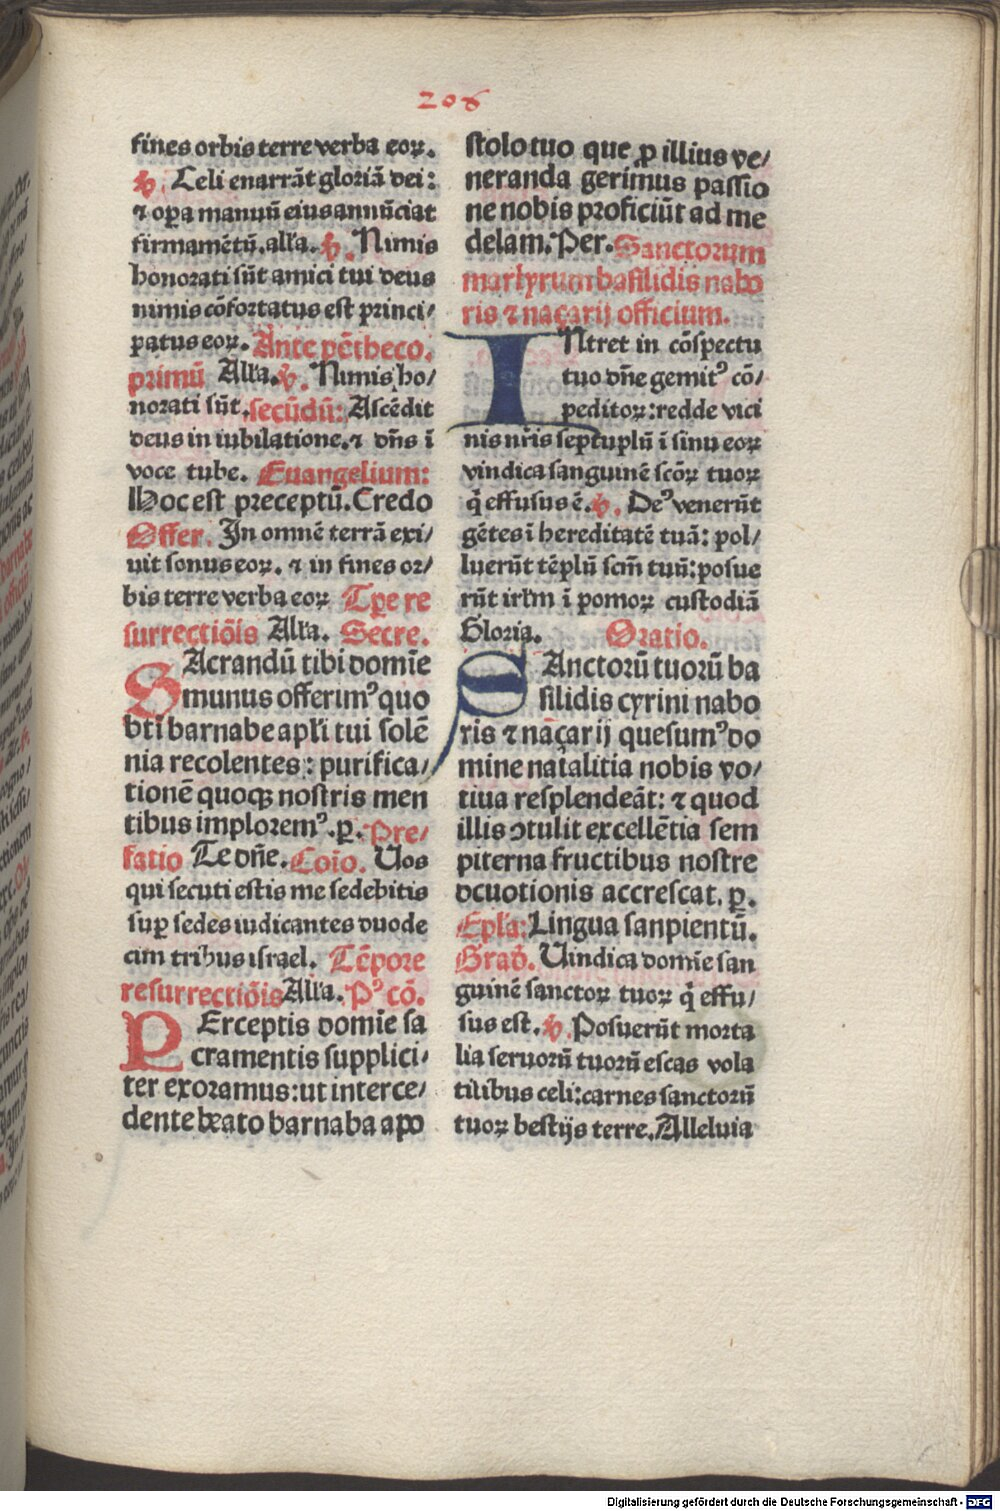 206
fines orbis terre verba eoꝝ.
℣. Celi enarrāt gloriā dei:
⁊ oꝑa manuū eius annūciat
firmamētū. alľa. ℣. Nimis
honorati sūt amici tui deus
nimis cōfortatus est princi/
patus eoꝝ. Ante pētheco.
primū Alľa. ℣. Nimis ho/
norati sūt. secūdū: Ascēdit
deus in iubilatione. ⁊ dn̄s ī
voce tube. Euangelium:
Hoc est preceptū. Credo
Offer. In omnē terrā exi/
uit sonus eoꝝ. ⁊ in fines or/
bis terre verba eoꝝ Tꝑe re
surrectiōis Alľa. Secre.
SAcrandū tibi domīe
munus offerimꝰ quo
bti̅ barnabe apľi tui solē
nia recolentes: purifica/
tionē quoqꝫ nostris men
tibus imploremꝰ. ꝑ. Pre/
fatio Te dn̄e. Coīo. Uos
qui secuti estis me sedebitis
suꝑ sedes iudicantes duode
cim tribus israel. Tēpore
resurrectiōis Alľa. Pꝰ cō.
PErceptis domīe sa
cramentis supplici/
ter exoramus: ut interce/
dente beato barnaba apo
stolo tuo que ꝓ illius ve/
neranda gerimus passio
ne nobis proficiūt ad me
delam. Per. Sanctorum
martyrum basilidis nabo
ris ⁊ naçarij officium.
INtret in cōspectu
tuo dn̄e gemitꝰ cō/
peditoꝝ: redde vici
nis nr̄is septuplū ī sinu eoꝝ
vindica sanguinē scōꝝ tuoꝝ
q̄ effusus ē. ℣. Deꝰ venerūt
gētes ī hereditatē tuā: pol/
luerūt tēplū scm̄ tuū: posue
rūt irľm ī pomoꝝ custodiā
Gloria. Oratio.
SAnctorū tuorū ba
silidis cyrini nabo
ris ⁊ naçarij quesumꝰ do
mine natalitia nobis vo/
tiua resplendeāt: ⁊ quod
illis ↄtulit excellētia sem
piterna fructibus nostre
deuotionis accrescat. ꝑ.
Epľa: Lingua sanpientū.
Grad̄. Uindica domīe san
guinē sanctoꝝ tuoꝝ q̄ effu/
sus est. ℣. Posuerūt morta
lia seruorū tuorū escas vola
tilibus celi: carnes sanctorū
tuoꝝ bestijs terre. Alleluia
Digitalisierung gefördert durch die Deutsche Forschungsgemeinschaft - DFG